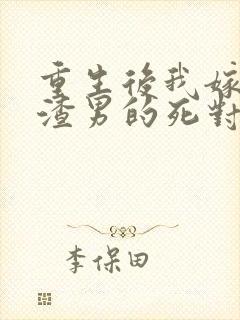 重生後我嫁
渣男的死對
李保田